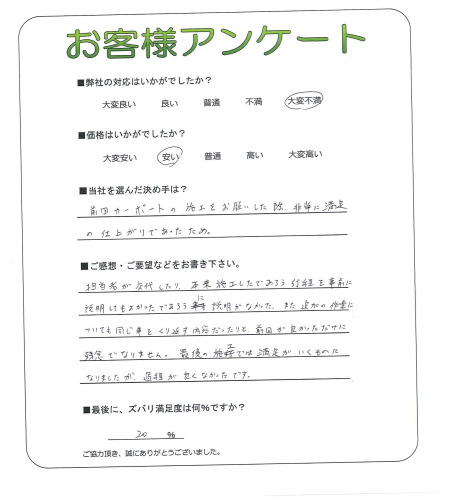 お客様アンケート
■弊社の対応はいかがでしたか？
大変良い 良い 普通 不満 大変不満
■価格はいかがでしたか？
大変安い 安い 普通 高い 大変高い
■当社を選んだ決め手は？
前回カーポートの施工をお願いした際、非常に満足
の仕上がりであったため。
■ご感想・ご要望などをお書き下さい。
担当者が交代したり、本来施工したであろう行程を事前に
説明してもよかったであろうに説明がなかった。また追加の作業に
ついても同じ事をくり返す内容だったりと、前回が良かっただけに
残念でなりません。最後の施工では満足がいくものに
なりましたが、過程が良くなかったです。
■最後に、ズバリ満足度は何%ですか？
20 %
ご協力頂き、誠にありがとうございました。